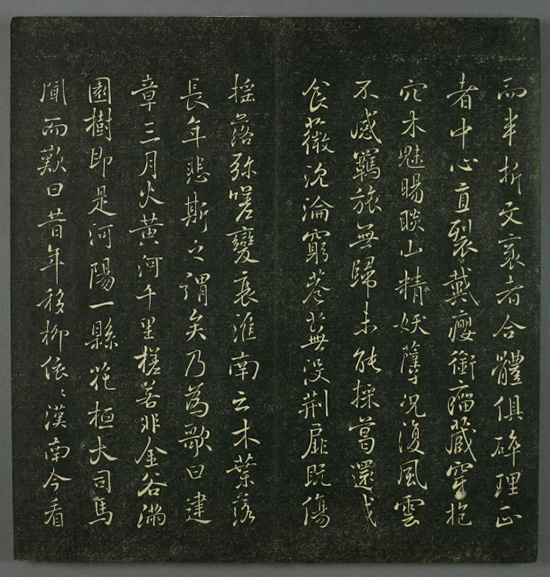 而半折文袤者合體俱碎理正
者中心直裂戴癭銜瘤藏穿抱
穴木魅睗睒山精妖孽况復風雲
不感羈旅無歸未能採葛還成
食薇沈淪窮巷蕪没荆扉既傷
搖落弥嗟變衰淮南云木葉落
長年悲斯之謂矣乃為歌曰建
章三月火黃河千里槎若非金谷滿
園樹即是河陽一縣花桓大司馬
聞而歎曰昔年移柳依〻漢南今看